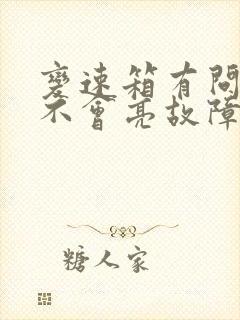 變速箱有問
不會亮故障
糖人家